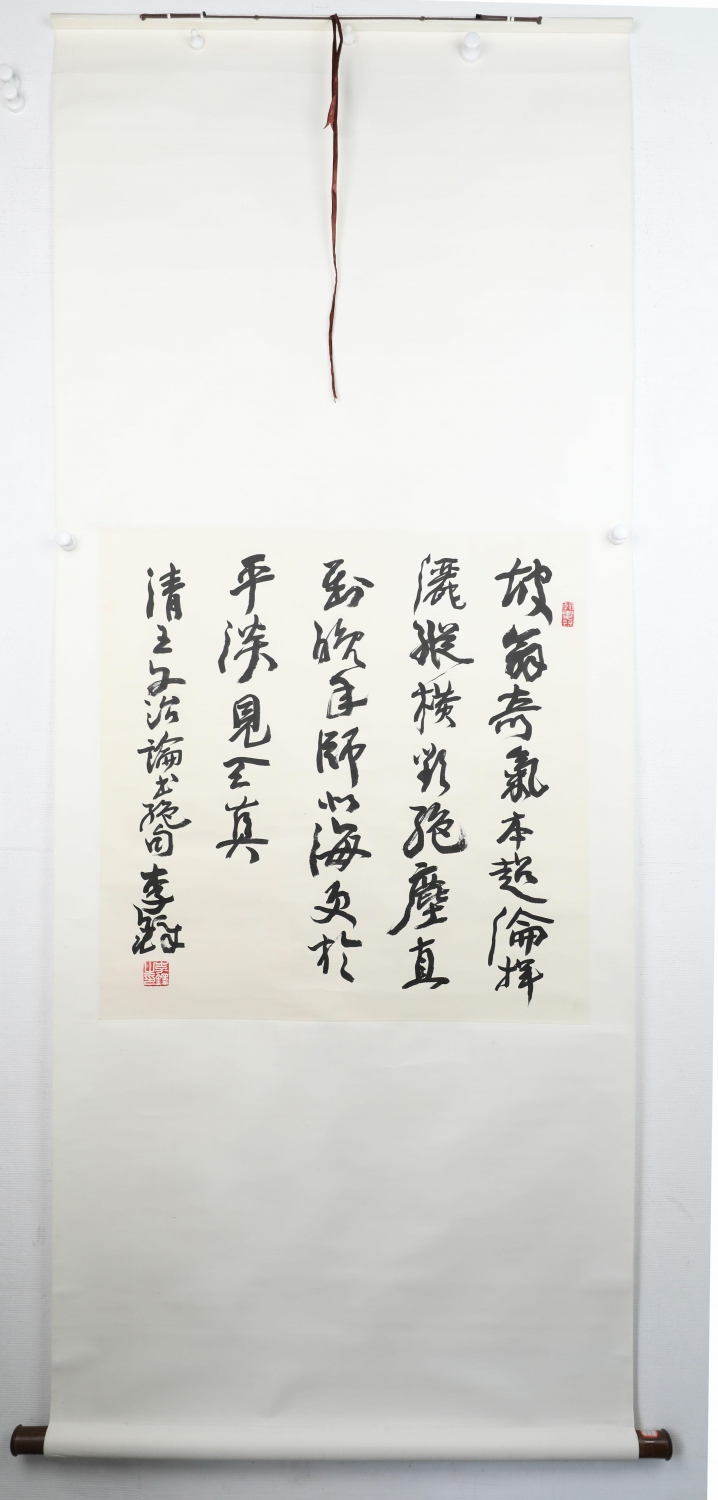 坡翁奇氣本超倫揮
灑縱橫欲絕塵直
到晚年師北海更於
平淡見天真
清王文治論書絕句李鐸